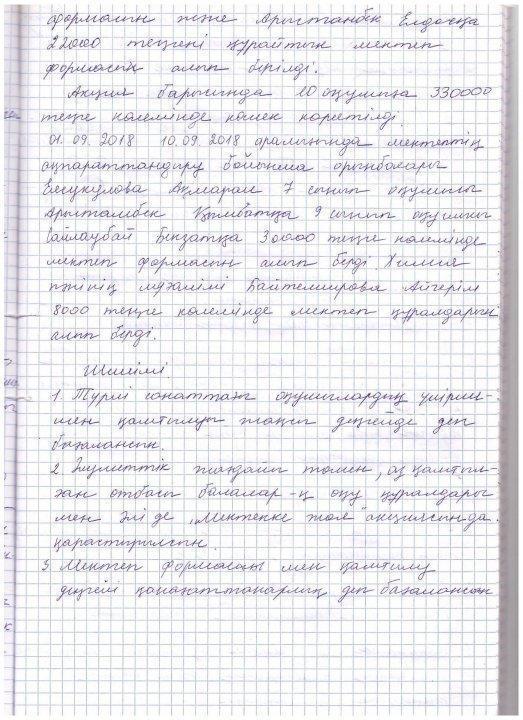 формасын және Арыстанбек Елдосқа
22000 теңгені құрайтын мектеп
формасын алып берілді.
Акция барысында 10 оқушыға 330000
теңге көлемінде көмек көрсетілді.
01.09.2018 10.09.2018 аралығында мектептің
ақпараттандыру бойынша орынбасары
Есиркулова Ақмарал 7 сынып оқушысы
Арыстанбек Қымбатқа 9 сынып оқушысы
Сайлаубай Бекзатқа 30000 теңге көлемінде
мектеп формасын алып берді. Химия
пәнінің мұғалімі Байтемирова Айгерім
8000 теңге көлемінде мектеп құралдарын
алып берді.
Шешімі:
1. Түрлі санаттағы оқушылардың үйірме-
мен қамтылуы жақсы деңгейде деп
бағалансын.
2. Әлуметтік жағдайы төмен, аз қамтыл-
ған отбасы балалар-ң оқу құралдары
мен әлі де „Мектепке жол" акциясында
қарастырылсын.
3. Мектеп формасы мен қамтылу
деңгейі қанағаттанарлық деп бағалансын